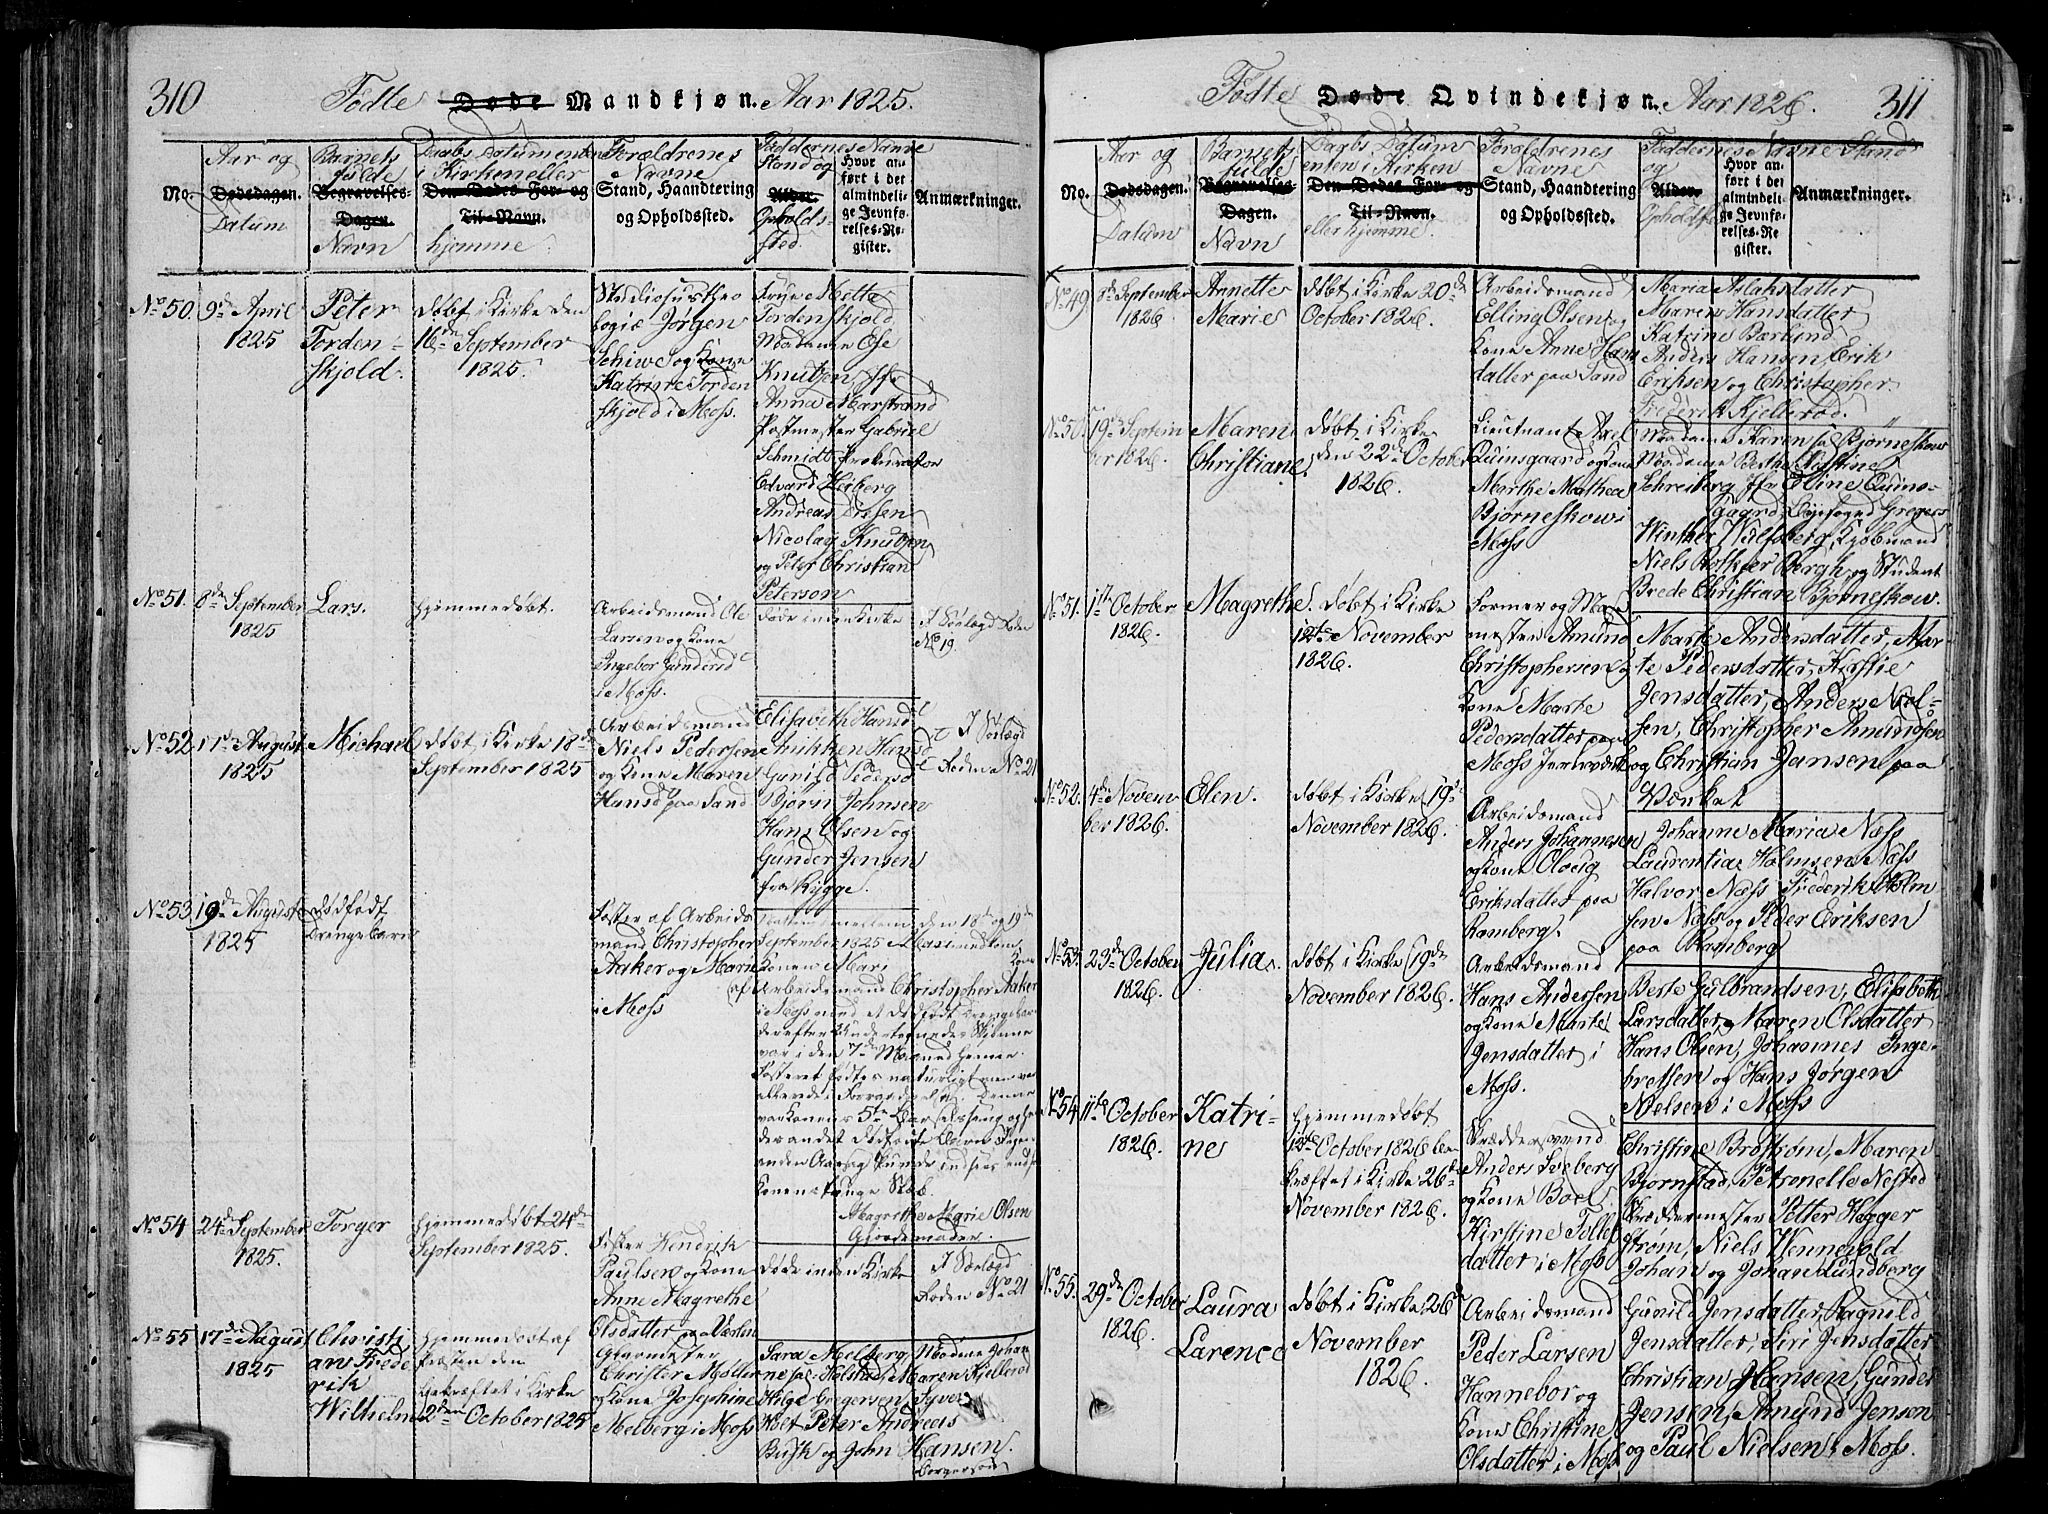 310
Fødte Døde Mandkjøn. Aar 1825.
No.
Aar og
Dødsdagen.
Datum
Barnets
fulde
Begravelses-
Dagen.
Navn
Daabs Datumen
i Kirken eller
Den Dødes For- og
Til-Navn.
hjemme
Forældrenes
Navne
Stand, Haandtering
og Opholdssted.
Faddernes Navne
Stand og
Alder.
Opholds-
sted.
Hvor an-
ført i det
almindeli-
ge Jevnfø-
relses-Re-
gister.
Anmærkninger.
No 50.
9de April
1825
Peter
Torden-
skjold.
Døbt i Kirke den
16de September
1825.
Studiosus theo
logiæ Jørgen
Schiwe og Kone
Katrine Torden
skjold i Moss.
Frue Mette
Tordenskjold
Madame Ose
Knutzen, Jfr
Anna Marstrand
Postmester Gabriel
Schmidt Prokurator
Edvard Heiberg
Andreas
Nicolay Knutzen
og Peter Christian
Peterson
No 51.
8de September
1825
Lars.
Hjemmedøbt.
Arbeidsmand Ole
Larsen og Kone
Ingebor Gundersd
i Moss.
Døde inden Kirke
I Sælægd Roden
No 19.
No 52
17de August
1825
Michael
Døbt i Kirke 18de
September 1825
Arbeidsmand
Niels Pedersen
og Kone Maren
Hansd paa Sand
Elisabeth Hansd
Anikken Hansd
Gunild Pedersd
Bjørn Johnsen
Hans Olsen og
Gunder Jensen
fra Rygge.
I Sælægd
Roden No 21
No 53
19de August
1825
Dødfødt
Drengebarn
Foster af Arbeids
mand Christopher
Aaker og Marie
i Moss
Natten mellem den 18de og 19de
September 1825
Konen Mari
af Arbeidsmand Christopher Aaker
i Moss med et dødfødt Drengebar
var i den 7de Maaned
Fosteret fødtes naturligt men var
allerede i Forraadnelse. Denne
var Konens 5te Barselseng og
det andet dødfødte Barn. Ingen
anden Aarsag kunde indsees end
Konens
Magrethe Marie Olsen
Gjordemoder.
No 54
24de September
1825.
Torger
Hjemmedøbt 24de
September 1825.
Fisker Hendrik
Paulsen og Kone
Anne Magrethe
Olsdatter paa Værlen
Døde inden Kirke
I Sælægd
Roden No 21
No 55
17de August
1825
Christi
an Frede
rik
Wilhelm
Hjemmedøbt af
Præsten den
bekræftet i Kirke
2den October 1825
Christer Møller
og Kone Josephine
Melberg i Moss
Sara Melberg, Madme Johan
ne sal. Holstad, Maren Kjellerød
Hilge Gregersen, Syver
Holt Peter Andreas
Busk og John Hansen.
311
Fødte Døde Qvindekjøn. Aar 1826.
No.
Aar og
Dødsdagen.
Datum
Barnets
fulde
Begravelses-
Dagen.
Navn
Daabs Datum
enten i Kirken
Den Dødes For- og
Til-Navn.
eller hjemme.
Forældrenes
Navne
Stand, Haandtering
og Opholdssted.
Faddernes Navne Stand
og
Alder.
Opholdsste
Hvor an-
ført i det
almindeli-
ge Jevnfø-
relses-Re-
gister.
Anmærkninger.
No 49
8de September
1826
Annette
Marie
Døbt i Kirke 20de
October 1826.
Arbeidsmand
Elling Olsen og
Kone Anne Hans
datter paa Sand
Maria Aslaksdatter
Maren Hansdatter
Katrine Barlund
Anders Hansen Erik
Eriksen og Christopher
Frederik Kjellerød.
No 50.
19de Septem
ber 1826.
Maren
Christiane.
Døbt i Kirke
den 22de October
1826.
Lieutnant Axel
Quinsgaard og Kone
Marthe Mathea
Bjørneskow i
Moss
Madame Karen sal Bjørneskow
Madame Berthe Kirstine
Schreiberg Jfr Eline Quins-
gaard, Byefoged Gregers
Winther Wulfsberg, Kjøbmand
Niels Rotkjer Bergh og Student
Brede Christian Bjørneskow.
No 51.
17de October
1826.
Magrethe.
Døbt i Kirke
12te November
1826.
Former og Mas
mester Amund
Christophersen og
Kone Marte
Pedersdatter paa
Moss Jernværk
Marte Andersdatter, Mar-
te Pedersdatter, Kirstie
Jensdatter, Anders Niel-
sen, Christopher Amundsen
og Christian Jansen paa
Værket
No 52.
4de Novem
ber 1826.
Elen.
Døbt i Kirke 19de
November 1826.
Arbeidsmand
Anders Johannesen
og Kone Oloug
Eriksdatter paa
Ramberg.
Johanne Maria Næss
Laurentia Holmsen Næss
Halvor Næss Frederik Holm
sen Næss og Peder Eriksen
paa Ramberg
No 53.
23de October
1826.
Julia.
Døbt i Kirke 19de
November 1826.
Arbeidsmand
Hans Andersen
og Kone Marte
Jensdatter i
Moss.
Berte Gulbrandsen, Elisabeth
Larsdatter, Maren Olsdatter
Hans Olsen, Johannes Inge-
bretsen og Hans Jørgen
Nielsen i Moss
No 54
11te October
1826.
Katri-
ne
Hjemmedøbt
12te October 1826 be-
kræftet i Kirke 26de
November 1826.
Skræddersvend
Anders Sveberg
og Kone Boel
Kirstine Tollef
datter i Moss
Christine Brostrøm, Maren
Bjørnstad, Petronelle Nested
Skræddermester Petter Hegger
strøm, Niels Wennevold
Johan og Johan Lundberg
No 55.
29de October
1826.
Laura
Larence
Døbt i Kirke 26de
November
1826.
Arbeidsmand
Peder Larsen
Hannebor og
Kone Christine
Olsdatter i Moss
Gunild Jensdatter, Ragnild
Jensdatter, Siri Jensdatter
Christian Hansen, Gunder
Jensen, Amund Jensen
og Paul Nielsen i Moss.